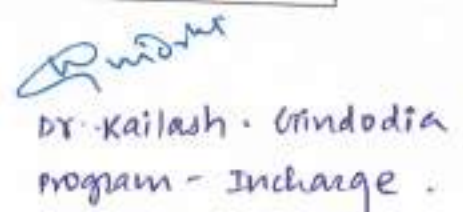 Dr. Kailash. Gindodia
Program - Incharge.